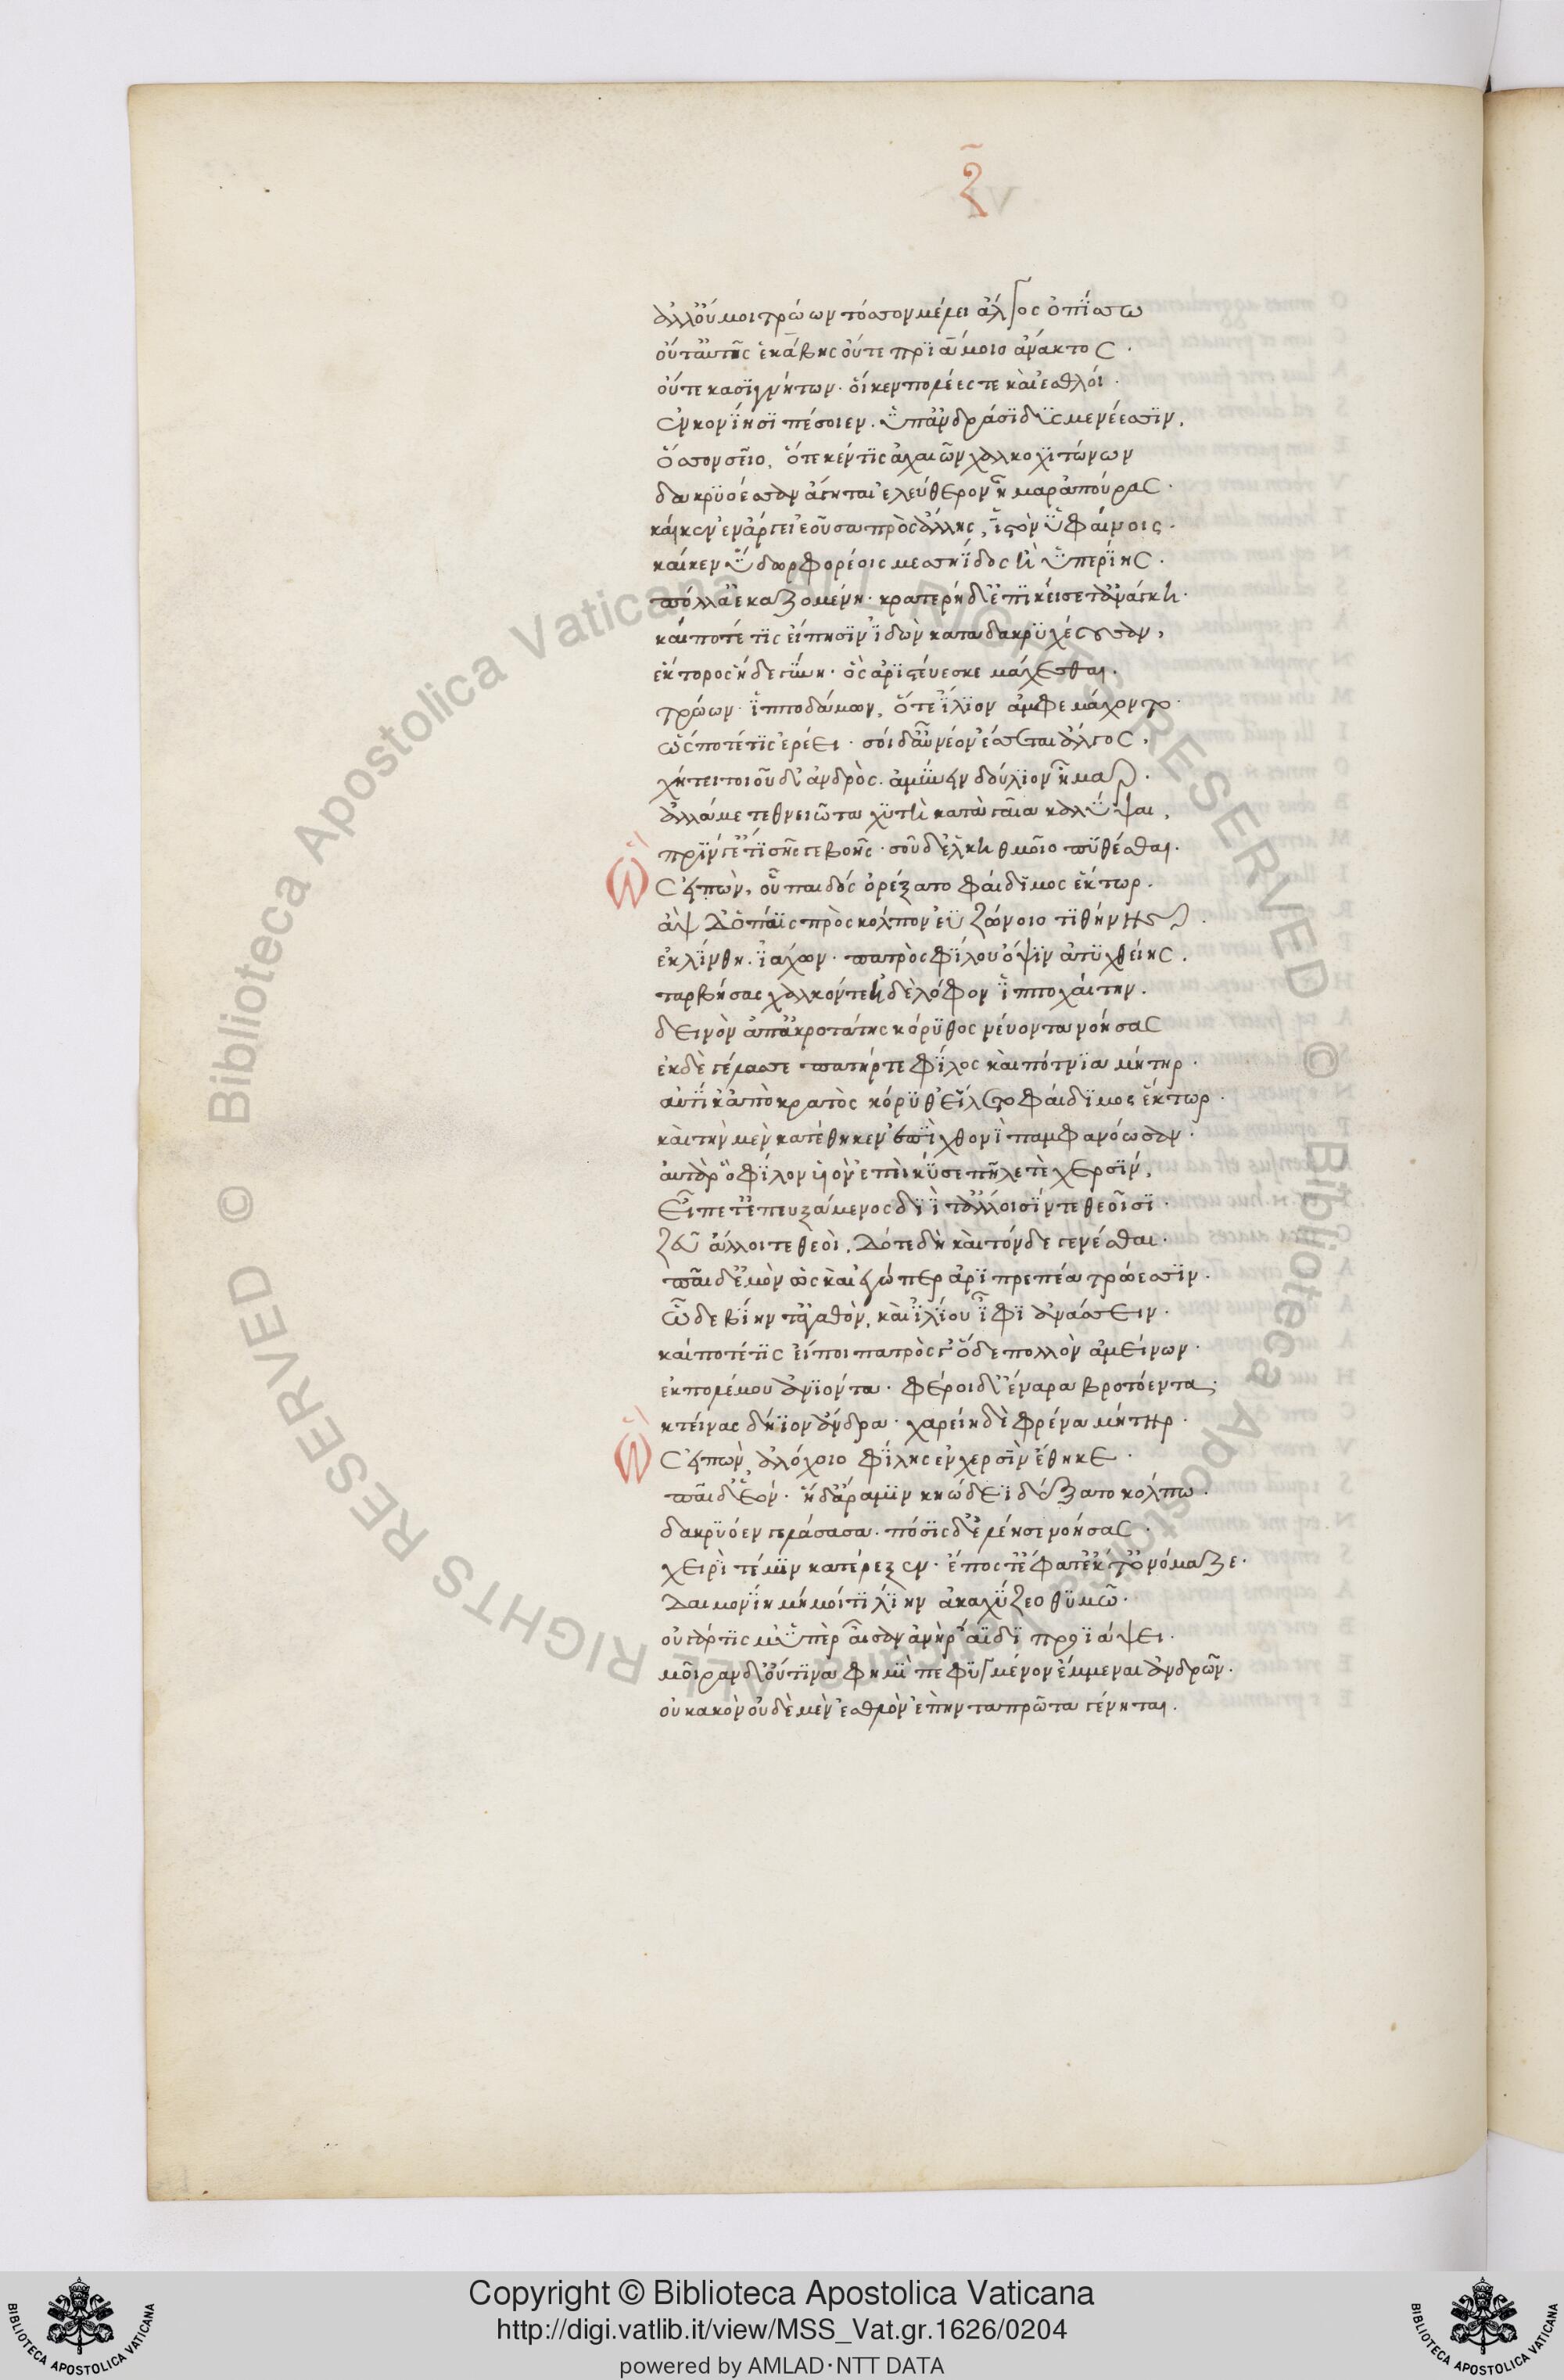 ζ
ἀλλ' οὔ μοι τρώων τόσσον μέλει ἄλγος ὀπίσσω
οὔτ' αὐτῆς ἑκάβης οὔτε πριάμοιο ἄνακτος.
οὔτε κασιγνήτων. οἵ κεν πολέες τε καὶ ἐσθλοί.
ἐν κονίῃσι πέσοιεν. ὑπ' ἀνδράσι δυσμενέεσσιν,
ὅσσον σεῖο, ὅτε κέν τις ἀχαιῶν χαλκοχιτώνων
δακρυόεσσαν ἄγηται ἐλεύθερον ἦμαρ ἀπούρας.
καί κεν ἐν ἄργει ἐοῦσα πρὸς ἄλλης, ἱστὸν ὑφαίνοις.
καί κεν ὕδωρ φορέοις μεσσηΐδος ἢ ὑπερίης.
πόλλ' ἀεκαζομένη. κρατερὴ δ' ἐπικείσετ' ἀνάγκη.
καί ποτέ τις εἴπησιν ἰδὼν κατα δακρυχέουσαν,
ἕκτορος ἥδε γυνή. ὃς ἀριστεύεσκε μάχεσθαι.
τρώων ἱπποδάμων, ὅτε ἴλιον ἀμφεμάχοντο.
ὥς ποτέ τις ἐρέει. σοὶ δ' αὖ νέον ἔσσεται ἄλγος,
χήτει τοιοῦδ' ἀνδρὸς. ἀμύνειν δούλιον ἦμαρ.
ἀλλά με τεθνειῶτα χυτὴ κατὰ γαῖα καλύψαι,
πρίν γ' ἔτι σῆς τε βοῆς. σοῦ δ' ἑλκηθμοῖο πυθέσθαι.
Ὣς εἰπὼν, οὗ παιδός ὀρέξατο φαίδιμος ἕκτωρ.
ἂψ δ' ὁ πάϊς πρὸς κόλπον ἐϋζώνοιο τιθήνης.
ἐκλίνθη. ἰάχων. πατρὸς φίλου ὄψιν ἀτυχθείς.
ταρβήσας χαλκόν τε ἠδὲ λόφον ἱπποχαίτην.
δεινὸν ἀπ' ἀκροτάτης κόρυθος νεύοντα νοήσας
ἐκ δὲ γέλασσε πατήρ τε φίλος καὶ πότνια μήτηρ.
αὐτίκ' ἀπὸ κρατὸς κόρυθ' εἵλετο φαίδιμος ἕκτωρ.
καὶ τὴν μὲν κατέθηκεν ἐπὶ χθονὶ παμφανόωσαν.
αὐτὰρ ὃ φίλον υἱὸν ἐπεὶ κύσε πῆλέ τε χερσίν,
Εἶπε τ' ἐπευξάμενος διὶ τ' ἄλλοισίν τε θεοῖσι.
ζεῦ ἄλλοι τε θεοὶ, δότε δὴ καὶ τόνδε γενέσθαι.
παῖδ' ἐμὸν ὡς καὶ ἐγώ περ ἀριπρεπέα τρώεσσιν.
ὧδε βίην τ' ἀγαθὸν, καὶ ἰλίου ἶφι ἀνάσσειν.
καί ποτέ τις εἴποι πατρὸς γ' ὅδε πολλὸν ἀμείνων.
ἐκ πολέμου ἀνιόντα. φέροι δ' ἔναρα βροτόεντα.
κτείνας δήϊον ἄνδρα. χαρείη δὲ φρένα μήτηρ.
Ὣς εἰπὼν, ἀλόχοιο φίλης ἐν χερσὶν ἔθηκε.
παῖδ' ἑόν. ἡ δ' ἄρα μιν κηώδεϊ δέξατο κόλπω.
δακρυόεν γελάσασα. πόσις δ' ἐλέησε νοήσας.
χειρὶ τέ μιν κατέρεξεν. ἔπος τ' ἔφατ' ἔκ τ' ὀνόμαζε.
Δαιμονίη μή μοί τι λίην ἀκαχίζεο θυμῶ.
οὐ γάρ τις μ' ὑπὲρ αἶσαν ἀνὴρ ἄϊδι προϊάψει.
μοῖραν δ' οὔτινα φημὶ πεφυγμένον ἔμμεναι ἀνδρῶν.
οὐ κακὸν οὐδὲ μὲν ἐσθλὸν ἐπὴν τα πρῶτα γένηται.
© Biblioteca Apostolica Vaticana ALL RIGHTS RESERVED
© Biblioteca Apostolica Vaticana ALL RIGHTS RESERVED
BIBLIOTECA APOSTOLICA VATICANA
Copyright © Biblioteca Apostolica Vaticana
http://digi.vatlib.it/view/MSS_Vat.gr.1626/0204
powered by AMLAD·NTT DATA
BIBLIOTECA APOSTOLICA VATICANA